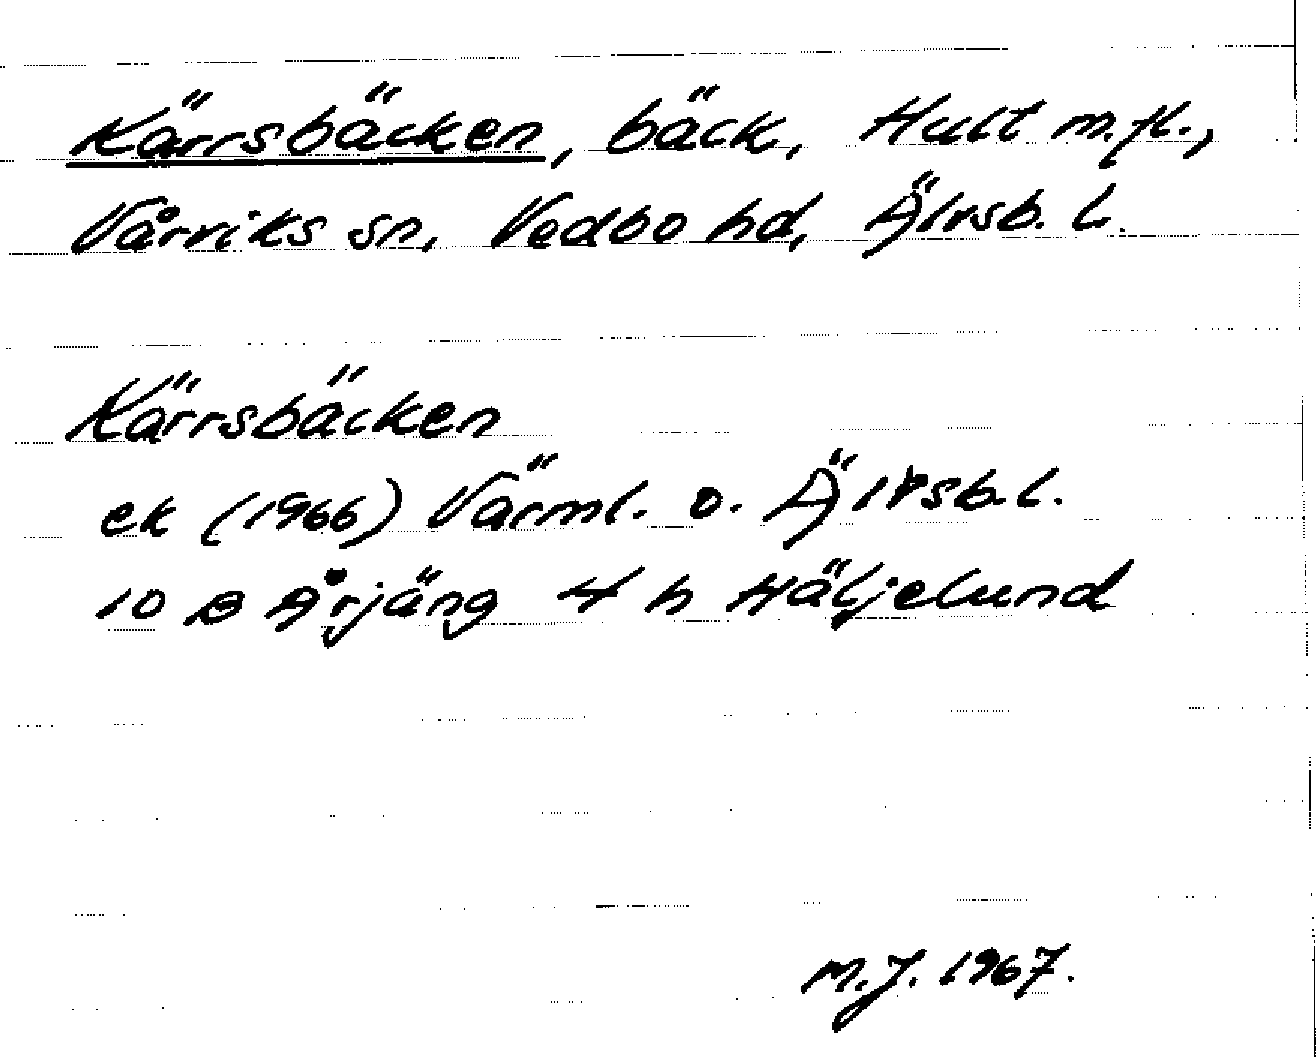 Kärrsbäcken, bäck, Hult m.fl.,
Vårviks sn, Vedbo hd, Älvsb. l.
Kärrsbäcken
ek (1966) Värml. o. Älvsb. l.
10 B Årjäng 4 h Häljelund
M.J. 1967.